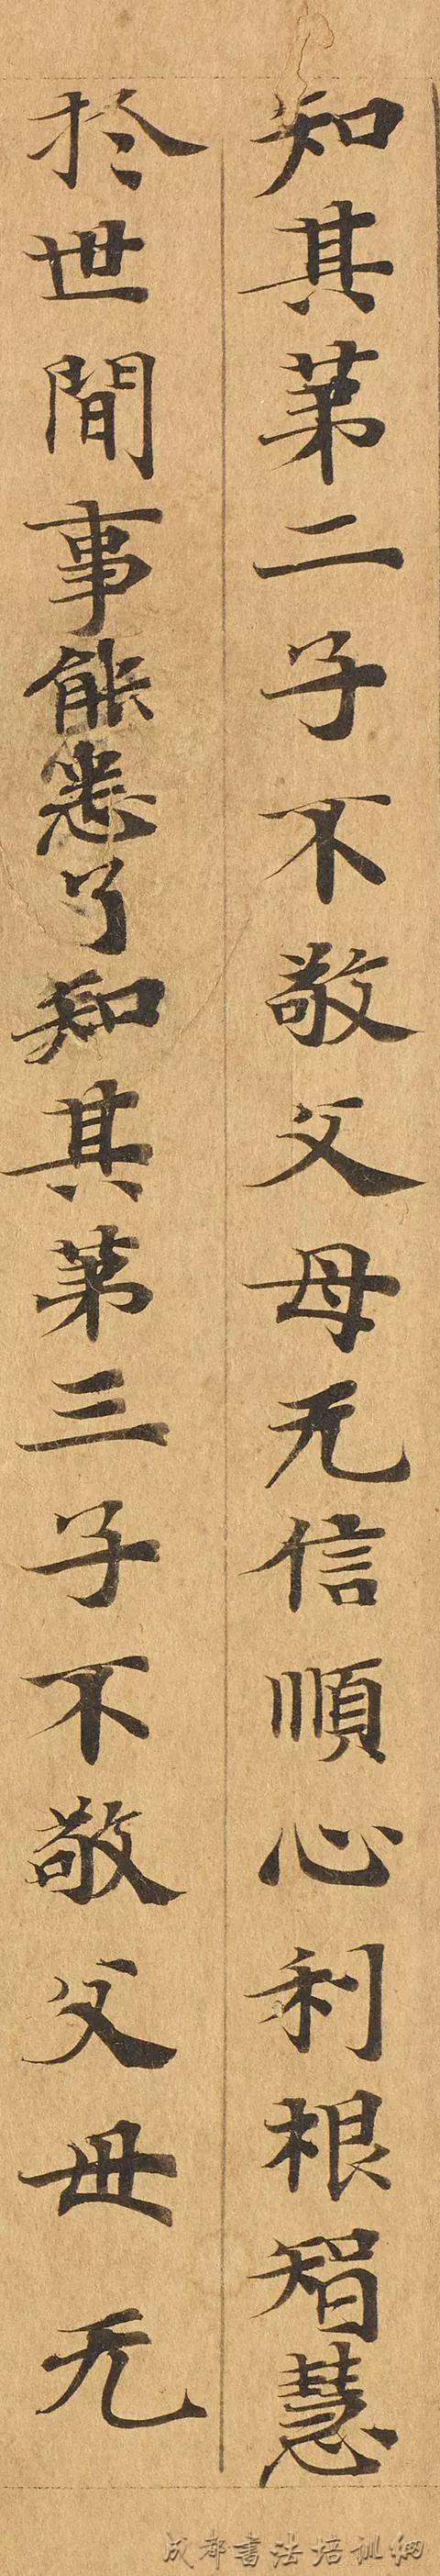 知其苐二子不敬父母无信順心利根智慧
於世間事能悉了知其苐三子不敬父母无
成都書法培训網